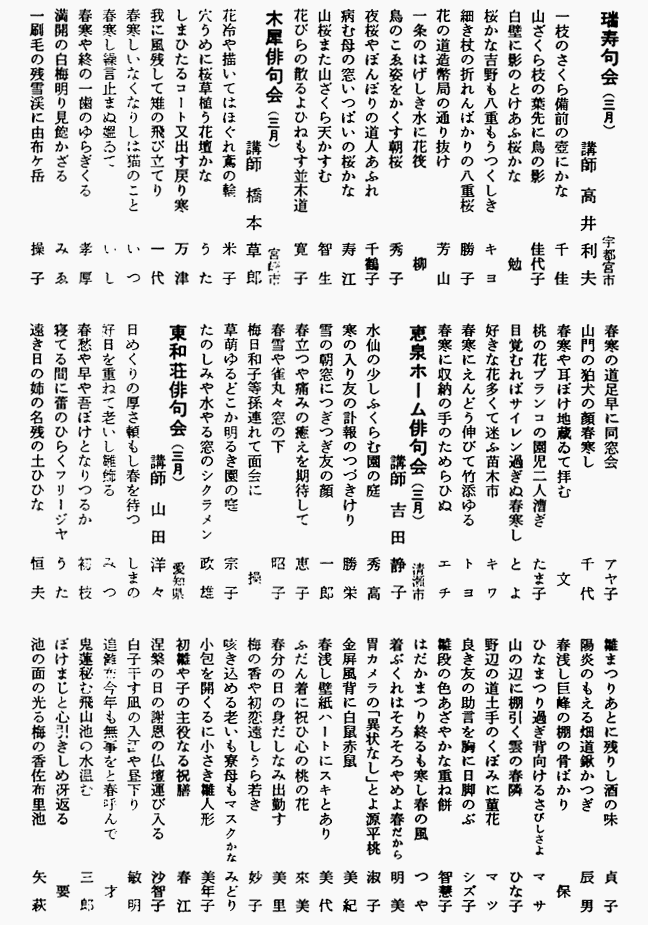 瑞寿句会（三月） 宇都宮市
講師 高井利夫
一枝のさくら備前の壺にかな 千佳
山ざくら枝の葉先に鳥の影 佳代子
白壁に影のとけあふ桜かな 勉
桜かな吉野も八重もうつくしき キヨ
細き杖の折れんばかりの八重桜 勝子
花の道造幣局の通り抜け 芳山
一条のはげしき水に花筏 柳
鳥のこゑ姿をかくす朝桜 秀子
夜桜やぼんぼりの道人あふれ 千鶴子
病む母の窓いつぱいの桜かな 寿江
山桜また山ざくら天かすむ 智生
花びらの散るよひねもす並木道 寛子
木犀俳句会（三月） 宮崎市
講師 橋本草郎
花冷や描いてはほぐれ鳶の輪 米子
穴うめに桜草植う花壇かな うた
しまひたるコート又出す戻り寒 万津
我に風残して雉の飛び立てり 一代
春寒しいなくなりしは猫のこと いつ
春寒し繰言止まぬ媼ゐて いし
春寒や終の一歯のゆらぎくる 孝厚
満開の白梅明り見飽かざる みゑ
一刷毛の残雪渓に由布ヶ岳 操子
春寒の道足早に同窓会 アヤ子
山門の狛犬の顔春寒し 千代
春寒や耳ぼけ地蔵ゐて拝む 文
桃の花ブランコの園児二人漕ぎ たま子
目覚むればサイレン過ぎぬ春寒し とよ
好きな花多くて迷ふ苗木市 キワ
春寒にえんどう伸びて竹添ゆる トヨ
春寒に収納の手のためらひぬ エチ
恵泉ホーム俳句会（三月） 清瀬市
講師 吉田静子
水仙の少しふくらむ園の庭 秀高
寒の入り友の訃報のつづきけり 勝栄
雪の朝窓につぎつぎ友の顔 一郎
春立つや痛みの癒えを期待して 恵子
春雪や雀丸々窓の下 昭子
梅日和子等孫連れて面会に 操
草萌ゆるどこか明るき園の庭 宗子
たのしみや水やる窓のシクラメン 政雄
東和荘俳句会（三月） 愛知県
講師 山田洋々
日めくりの厚さ頼もし春を待つ しまの
好日を重ねて老いし雛飾る みつ
春愁や早や吾ぼけとなりつるか 初枝
寝てる間に蕾のひらくフリージヤ うた
遠き日の姉の名残の土ひひな 恒夫
雛まつりあとに残りし酒の味 貞子
陽炎のもえる畑道鍬かつぎ 辰男
春浅し巨峰の棚の骨ばかり 保
ひなまつり過ぎ背向けるさびしさよ マサ
山の辺に棚引く雲の春隣 ひな子
野辺の道土手のくぼみに菫花 マツ
良き友の助言を胸に日脚のぶ シズ子
雛段の色あざやかな重ね餅 智慧子
はだかまつり終るも寒し春の風 つや
着ぶくれはそろそろやめよ春だから 明美
胃カメラの「異状なし」とよ源平桃 淑子
金屏風背に白鼠赤鼠 美紀
春浅し壁紙ハートにスキとあり 美代
ふだん着に祝ひ心の桃の花 來美
春分の日の身だしなみ出勤す 美里
梅の香や初恋遠しうら若き 妙子
咳き込める老いも寮母もマスクかな みどり
小包を開くるに小さき雛人形 美年子
初雛や子の主役なる祝膳 春江
涅槃の日の謝恩の仏壇運び入る 沙智子
白子干す凪の入江や昼下り 敏明
追儺在今年も無事をと春呼んで 才
鬼蓮秘む飛山池の水温む 三郎
ぼけまじと心引きしめ冴返る 要
池の面の光る梅の香佐布里池 矢萩